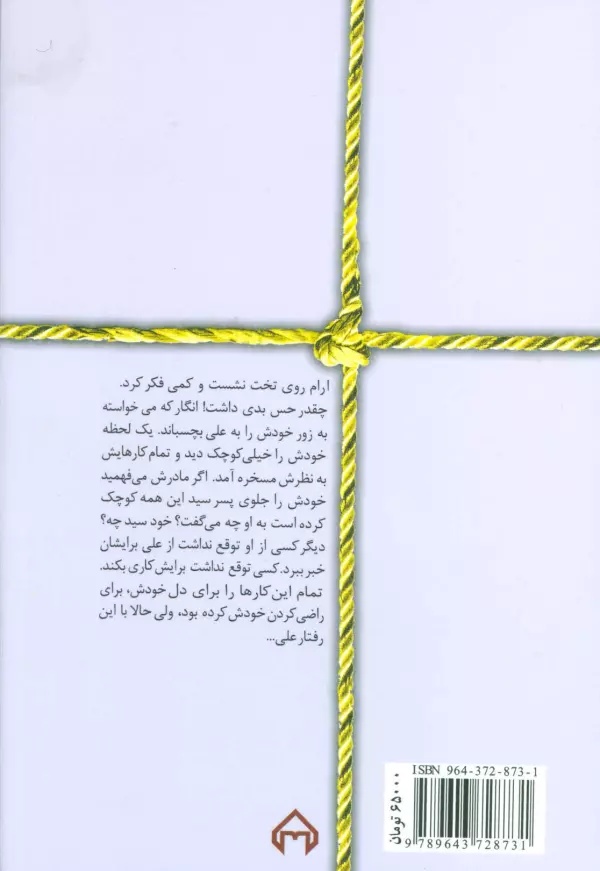 ارام روی تخت نشست و کمی فکر کرد.
چقدر حس بدی داشت! انگار که می خواسته
به زور خودش را به علی بچسباند. یک لحظه
خودش را خیلی کوچک دید و تمام کارهایش
به نظرش مسخره آمد. اگر مادرش می‌فهمید
خودش را جلوی پسر سید این همه کوچک
کرده است به او چه می‌گفت؟ خود سید چه؟
دیگر کسی از او توقع نداشت از علی برایشان
خبر ببرد. کسی توقع نداشت برایش کاری بکند.
تمام این کارها را برای دل خودش، برای
راضی کردن خودش کرده بود، ولی حالا با این
رفتار علی...
ISBN 964-372-873-1
9 789643 728731
۶۵۰۰۰ تومان